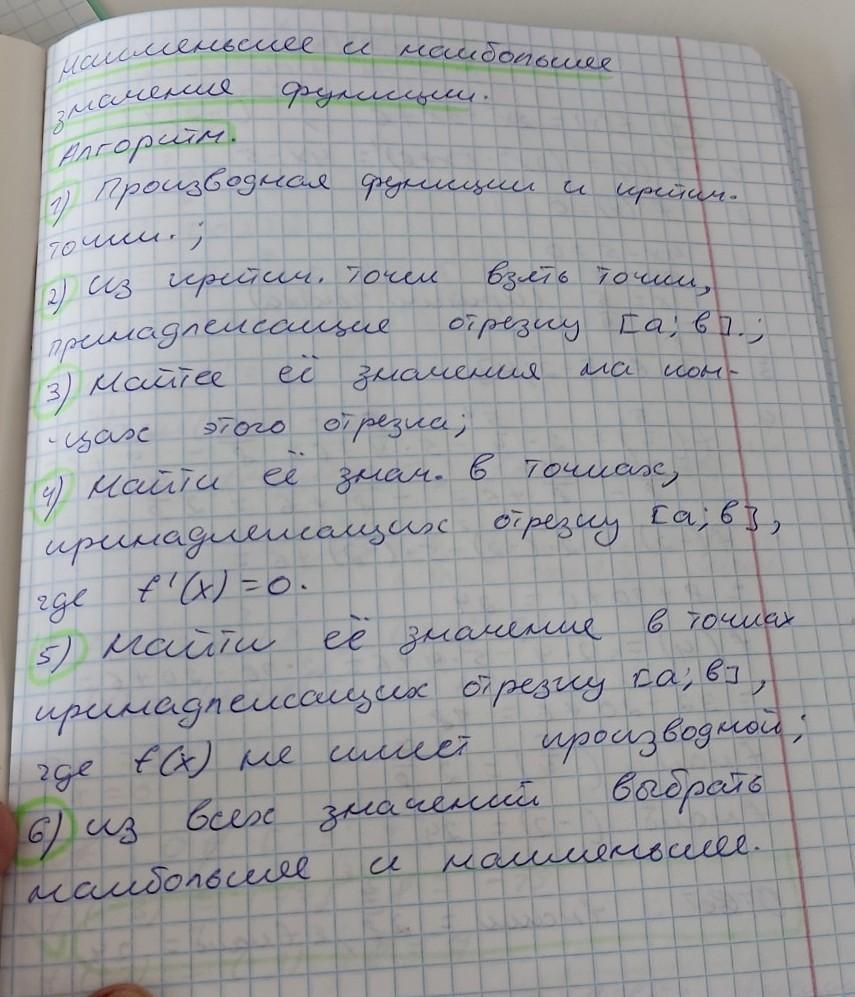 наименьшее и наибольшее
значения функции.
Алгоритм.
1) Производная функции и критич.
точки. ;
2) Из критич. точек взять точки,
принадлежащие отрезку [a; в]. ;
3) Найти её значения на кон-
-цах этого отрезка;
4) Найти её знач. в точках,
принадлежащих отрезку [a; в],
где f'(x) = 0.
5) Найти её значение в точках
принадлежащих отрезку [a; в],
где f(x) не имеет производной;
6) Из всех значений выбрать
наибольшее и наименьшее.